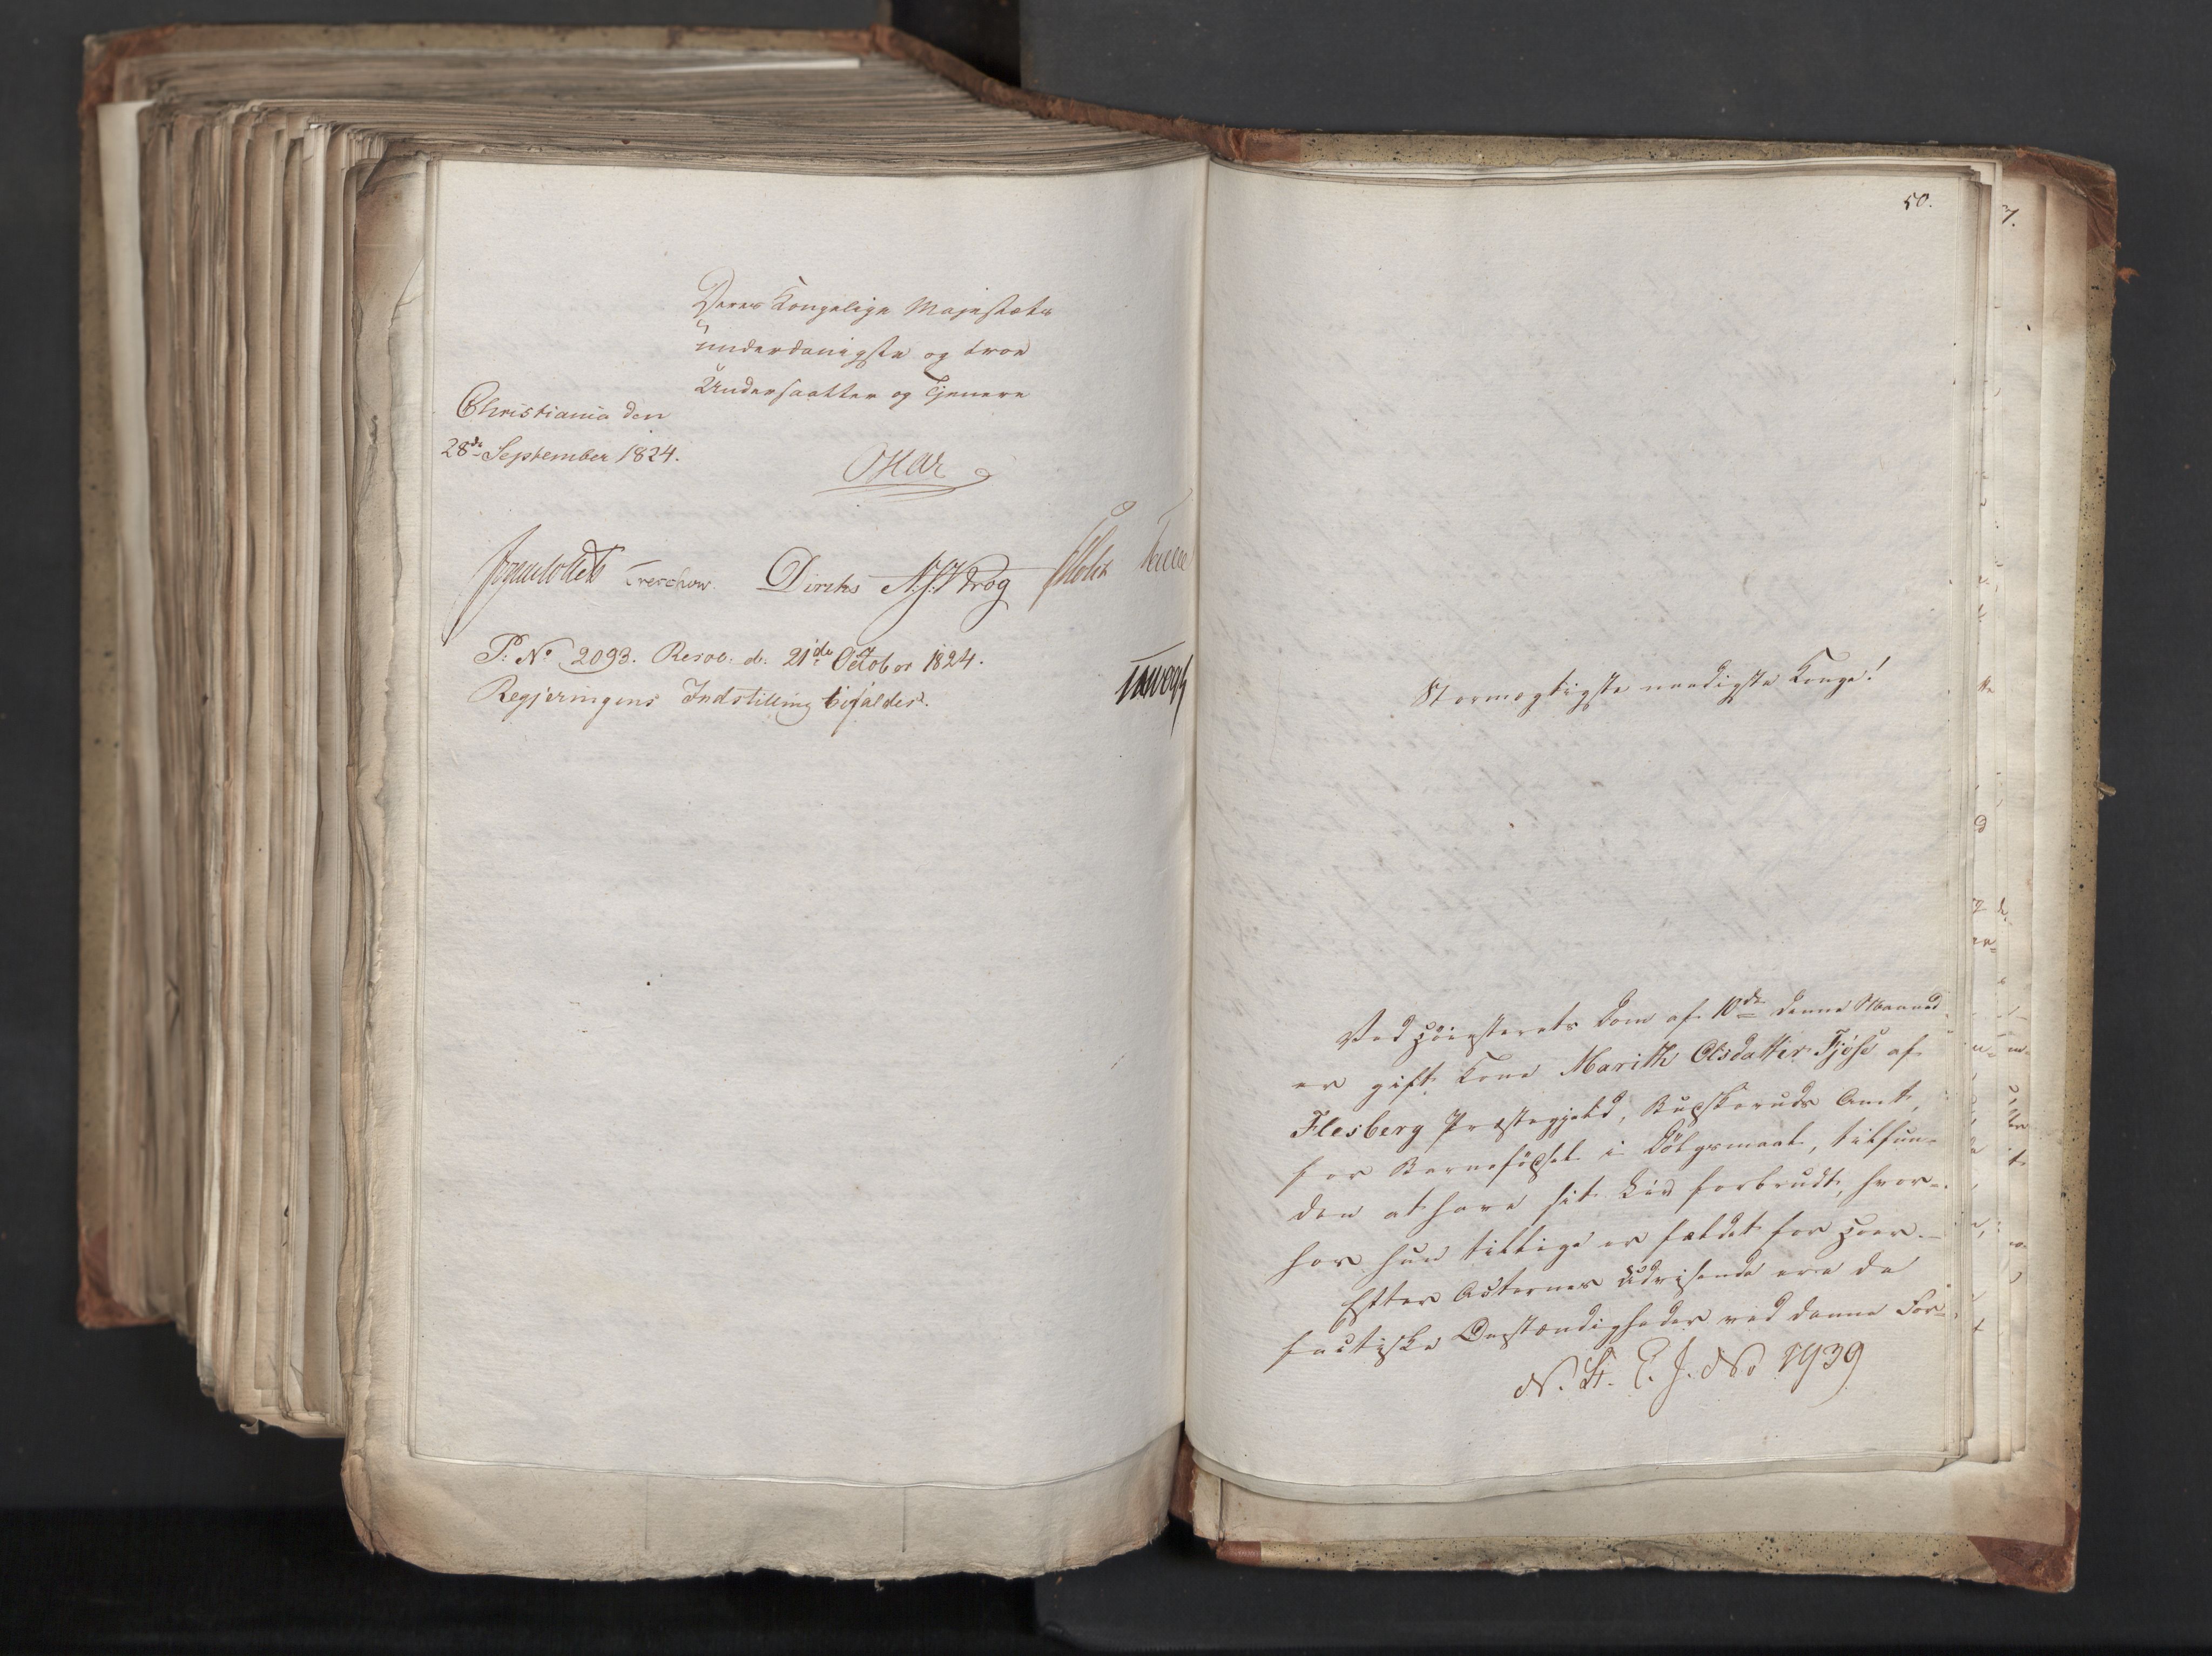 Deres Kongelige Majestæts
underdanigste og troe
Undersaatter og Tjenere
Christiania den
28de September 1824.
Oscar
Sommerhielm Treschow. Diriks N. J. Krog Motzfeldt
P: No 2093. Resol. d. 21de October 1824.
Regjeringens Indstilling bifaldes.
50.
Stormægtigste naadigste Konge!
Ved Høiesterets Dom af 10de denne Maaned
er gift Kone Marith Olsdatter Fjøse af
Flesberg Præstegjeld, Buskeruds Amt,
for Barnefødsel i Dølgsmaal, tilfun-
den at have sit Liv forbrudt, hvor-
hos hun tillige er fældet for Hoer.
Efter Acternes Udvisende ere de
factiske Omstændigheder ved denne For-
N. St. E. J. No 1939